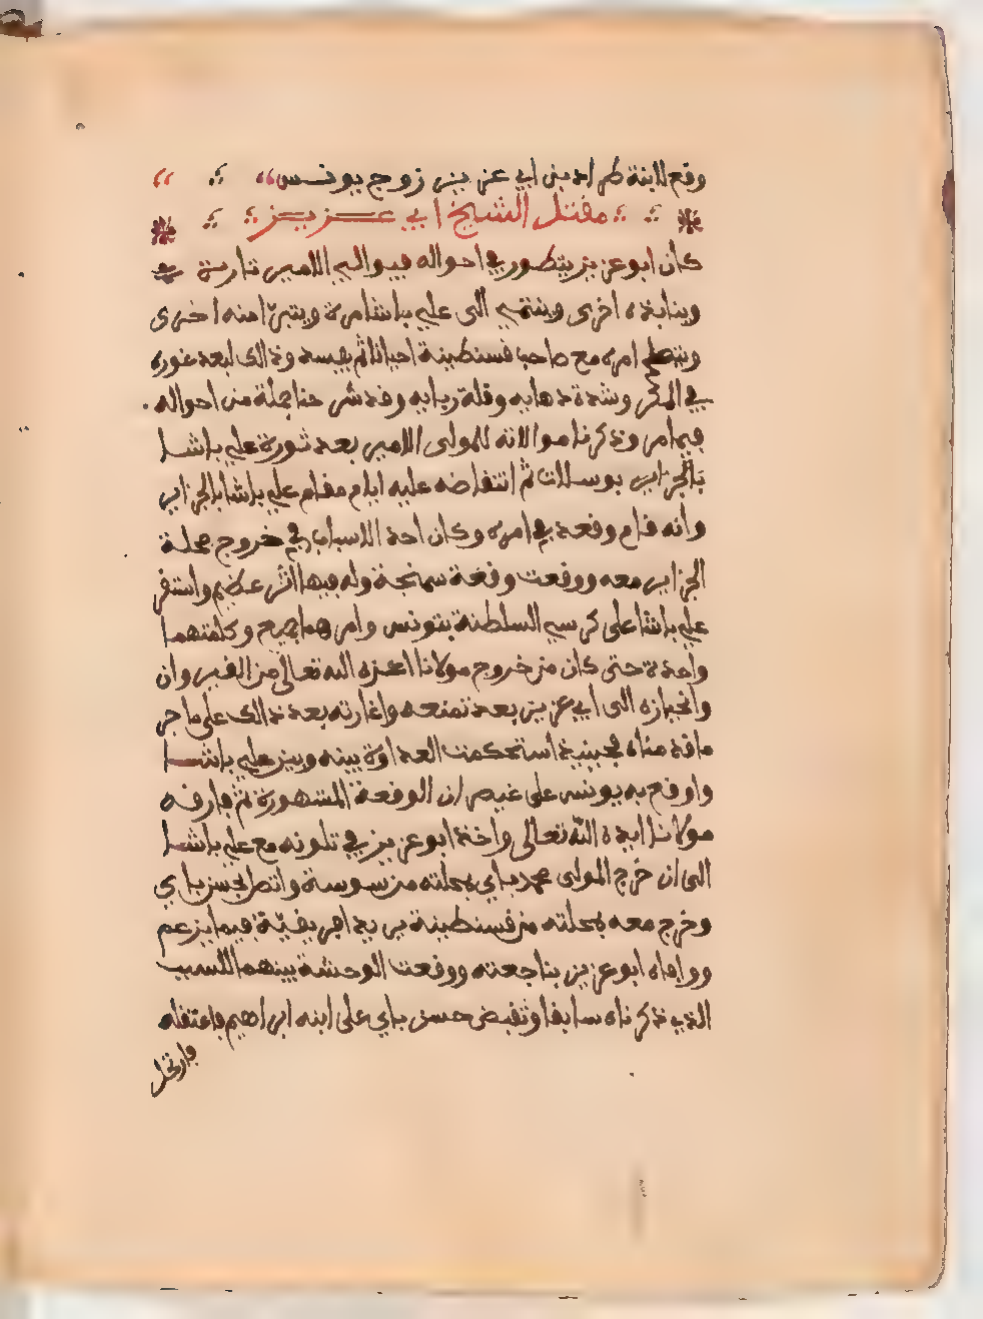 وقع لابنة طراد بن ابي عزيز زوج يونس
مقتل الشيخ ابي عزيز
كان ابو عزيز يتطور في احواله فيوالي الامير تارة
وينابذه اخرى وينتمي الى علي باشا مرة ويتبرا منه اخرى
امره مع صاحب قسنطينة احيانا ثم يفسد وذالك لبعد غوره
في المكر وشدة دهايه وقلة وقد شرحنا جملة من احواله
فيما مر وذكرنا موالاته للمولى الامير بعد ثورة علي باشا
بوسلات ثم انتقاضه عليه ايام مقام علي باشا بالجزاير
وانه قام وقعد في امره وكان احد الاسباب في خروج محلة
الجزاير معه ووقعت وقعة سمنجة وله فيها اثر عظيم واستقر
علي باشا على كرسي السلطنة بتونس وامرهما جميع وكلمتهما
واحدة حتى كان من خروج مولانا اعزه الله تعالى من القيروان
وانحيازه الى ابي عزيز بعد تمنعه واغارته بعد ذالك على ما جر
ما قدمناه فحينيذ استحكمت العداوة بينه وبين علي باشا
واوقع به يونس على غيص ان الوقعة المشهورة ثم فارقه
مولانا ايده الله تعالى واخذ ابو عزيز في تلونه مع علي باشا
الى ان خرج المولى محمد باي بمحلته من سوسة واتصل بحسن باي
وخرج معه بمحلته من قسنطينة يريد افريقية فيما يزعم
ووافاه ابو عزيز بناجعته ووقعت الوحشة بينهما للسبب
الذي ذكرناه سابقا وتقبض حسن باي على ابنه ابراهيم فاعتقله
فارتحل